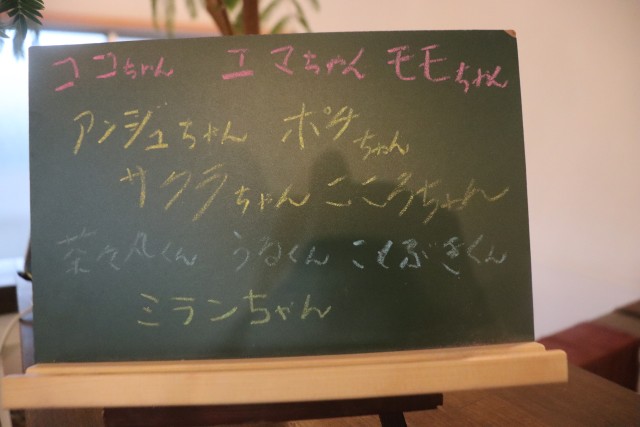 ココちゃん エマちゃん モモちゃん
アンジュちゃん ポチちゃん
サクラちゃん こころちゃん
茶々丸くん うるくん こぶぎくん
ミランちゃん